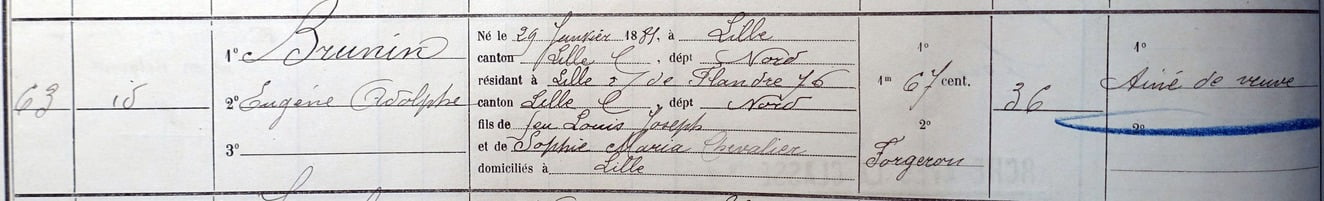 63
id
1º Brunin
2º Eugène Adolphe
3º
Né le 29 Janvier 1881, à Lille
canton Lille C, dépt Nord
résidant à Lille r. de Flandre 76
canton Lille C, dépt Nord
fils de feu Louis Joseph
et de Sophie Maria Chevalier
domiciliés à Lille
1º
1m 67 cent.
2º
Forgeron
36
1º
Ainé de veuve
2º